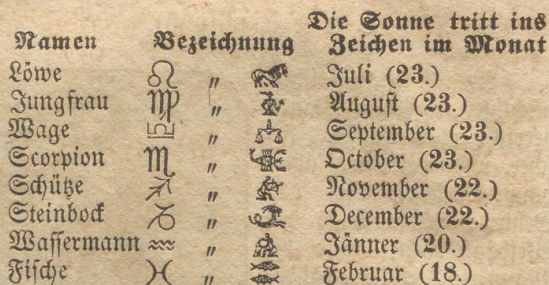 Die Sonne tritt ins
Namen Bezeichnung Zeichen im Monat
Löwe ♌ " Juli (23.)
Jungfrau ♍ " August (23.)
Wage ♎ " September (23.)
Scorpion ♏ " October (23.)
Schütze ♐ " November (22.)
Steinbock ♑ " December (22.)
Wassermann ♒ " Jänner (20.)
Fische ♓ " Februar (18.)